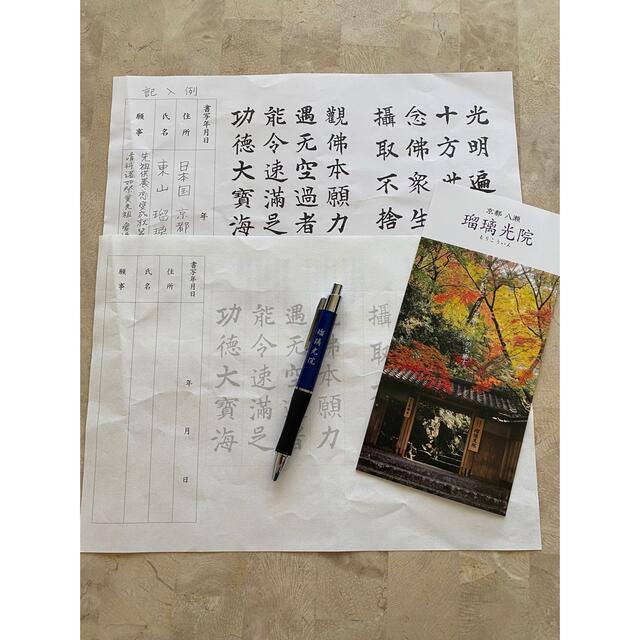 記入例
光明遍
十方世
念佛衆生
攝取不捨
觀佛本願力
遇无空過者
能令速滿足
功德大寶海
書写年月日 年
住所 日本国 京都
氏名 東山 瑠璃
願事 先祖供養
攝取不
佛本願力
遇无空過者
能令速滿足
功德大寶海
書写年月日 年 月 日
住所
氏名
願事
瑠璃光院
京都 八瀬
瑠璃光院
るりこういん